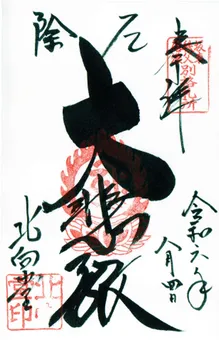 奉拝
令和六年
八月四日
厄
除
大悲殿
北向堂